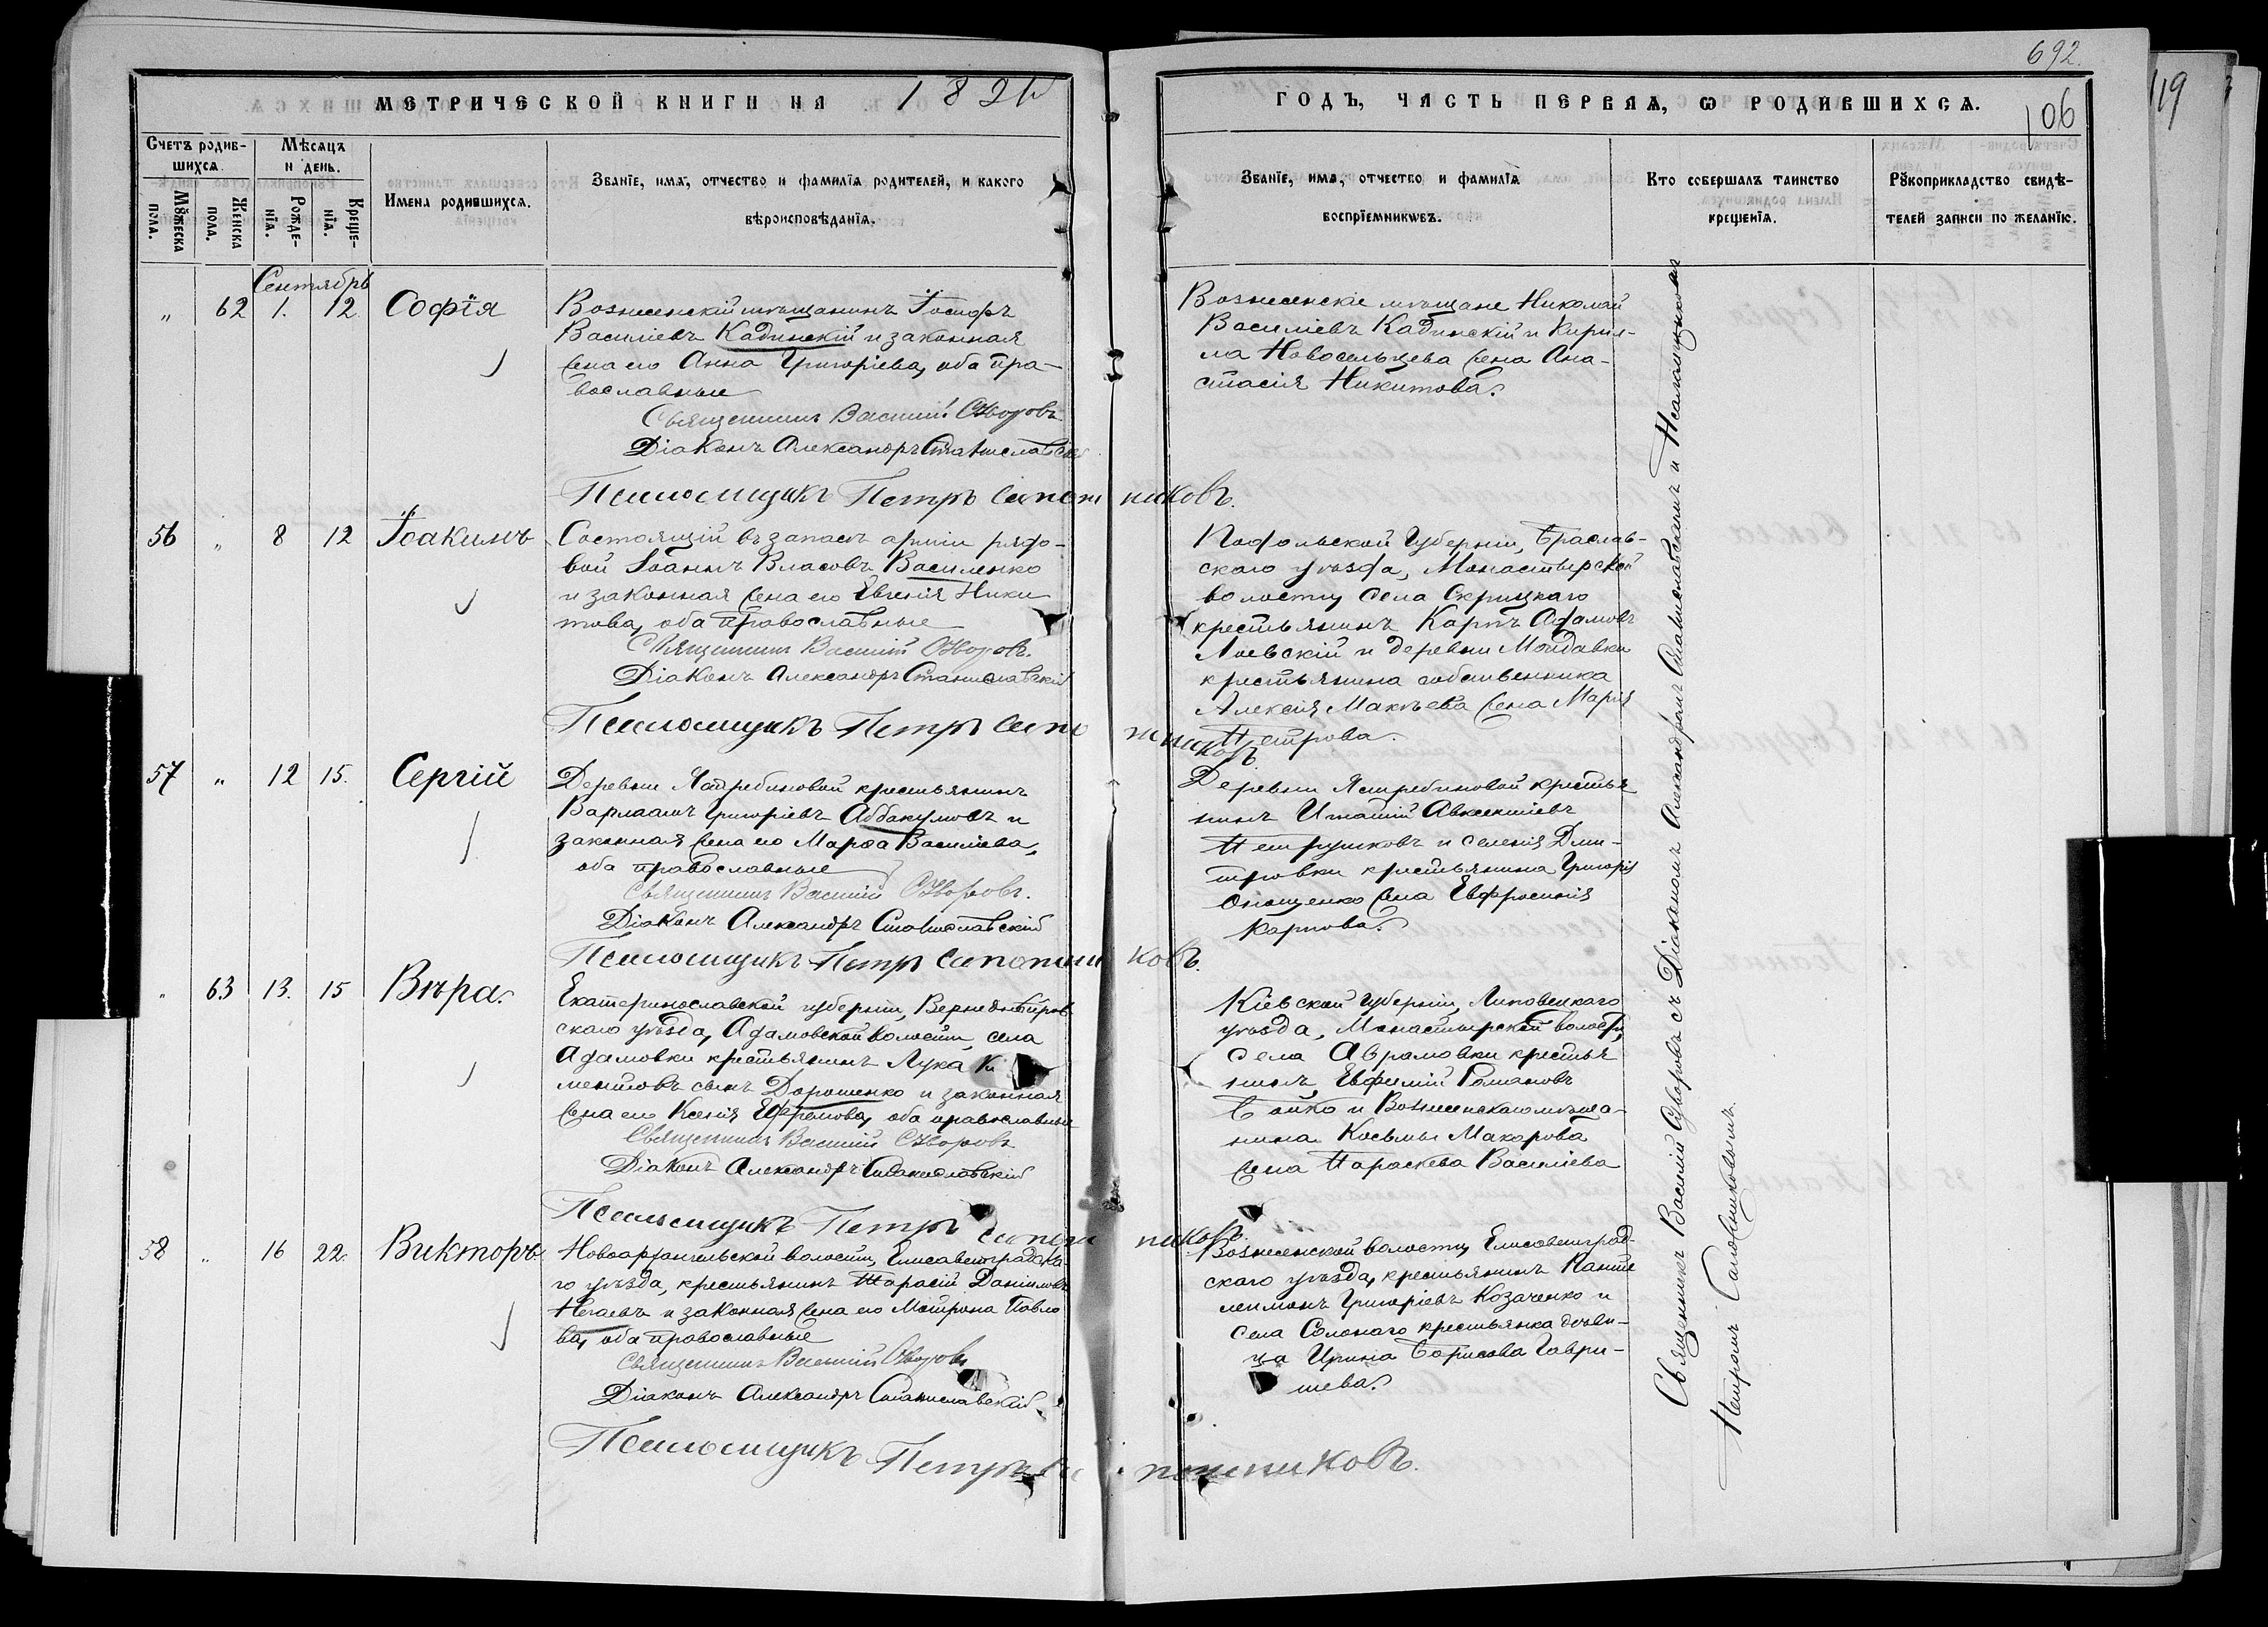 692.
119
106
МЕТРИЧЕСКОЙ КНИГИ НА 189 ГОДЪ, ЧАСТЬ ПЕРВАЯ, Ѡ РОДИВШИХСѦ.
Счетъ родив-
шихсѧ.
Мѹжеска
пола.
Женска
пола.
Мѣсѧцъ
и день.
Рожде-
нїѧ.
Креще-
нїѧ.
Имена родившихсѧ.
Званїе, имѧ, отчество и фамилїѧ родителей, и какого
вѣроисповѣданїѧ.
Званїе, имѧ, отчество и фамилїѧ
воспрїемникѡвъ.
Кто совершалъ таинство
крещенїѧ.
Рѹкоприкладство свидѣ-
телей записи по желанїю.
Сентябрь
" 62 1. 12. Софія
Вознесенскій мѣщанинъ Іосифъ
Василіевъ Кадинскій и законная
жена его Анна Григоріева, оба пра-
вославные
Священникъ Василій Суворовъ
Діаконъ Александръ Станиславскій
Псаломщикъ Петръ Сапожниковъ.
Вознесенскіе мѣщане Николай
Василіевъ Кадинскій и Кирил-
ла Новосельцева жена Ана-
стасія Никитова.
56 " 8 12 Іоакимъ
Состоящій въ запасѣ арміи рядо-
вой Іоаннъ Власовъ Василенко
и законная жена его Евгенія Ники
това, оба православные
Священникъ Василій Суворовъ.
Діаконъ Александръ Станиславскій
Псаломщикъ Петръ Сапожниковъ.
Подольской Губерніи, Браслав-
скаго уѣзда, Монастырской
волости, села Скрицкаго
крестьянинъ Карпъ Адамовъ
Лоевскій и деревни Молдавки
крестьянина собственника
Алексія Макѣева жена Марія
Петрова.
57 " 12 15. Сергій
Деревни Ястребиновой крестьянинъ
Варлаамъ Григоріевъ Аввакумовъ и
законная жена его Марфа Василіева,
оба православные
Священникъ Василій Суворовъ.
Діаконъ Александръ Станиславскій
Псаломщикъ Петръ Сапожниковъ.
Деревни Ястребиновой крестья
нинъ Игнатій Авксентіевъ
Петрушковъ и селенія Дми-
тровки крестьянина Григорія
Онищенко жена Евфросинія
Карпова.
" 63 13. 15 Вѣра.
Екатеринославской губерніи, Верхнеднѣпров
скаго уѣзда, Адамовской волости, села
Адамовки крестьянинъ Лука К
ментовъ сынъ Дорошенко и законная
жена его Ксенія Ефремова, оба православные
Священникъ Василій Суворовъ
Діаконъ Александръ Станиславскій
Псаломщикъ Петръ Сапожниковъ.
Кіевской губерніи, Липовецкаго
уѣзда, Монастырской волости,
села Аврамовки крестья
нинъ Евфимій Романовъ
Бойко и Вознесенскаго мѣща-
нина Косьмы Макарова
жена Параскева Василіева
58 " 16 22. Викторъ.
Новоархангельской волости, Елисаветградска
го уѣзда, крестьянинъ Тарасій Даніиловъ
Негаевъ и законная жена его Матрона Павло
ва, оба православные
Священникъ Василій Суворовъ
Діаконъ Александръ Станиславскій
Псаломщикъ Петръ Сапожниковъ.
Вознесенской волости, Елисаветград-
скаго уѣзда, крестьянинъ Панте
леимонъ Григоріевъ Козаченко и
села Солонаго крестьянка дѣви-
ца Ирина Борисова Гаври-
шева.
Священникъ Василій Суворовъ съ Діакономъ Александромъ Станиславскимъ и Псаломщикомъ
Петромъ Сапожниковымъ.